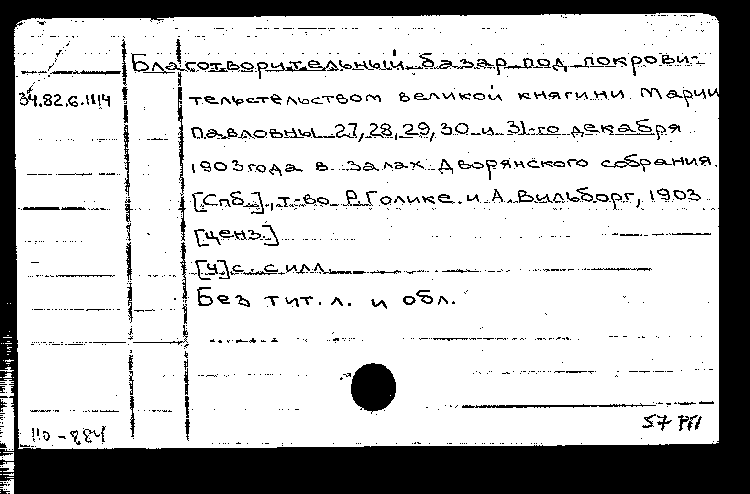 Благотворительный базар под покрови-
34.82.6.1114
тельстельством великой княгини Марии
Павловны 27, 28, 29, 30 и 31-го декабря
1903 года в залах Дворянского собрания.
[Спб.], т-во Р. Голике и А. Вильборг, 1903
[ценз.]
[4] с. с илл.
Без тит. л. и обл.
57 РП
110-884